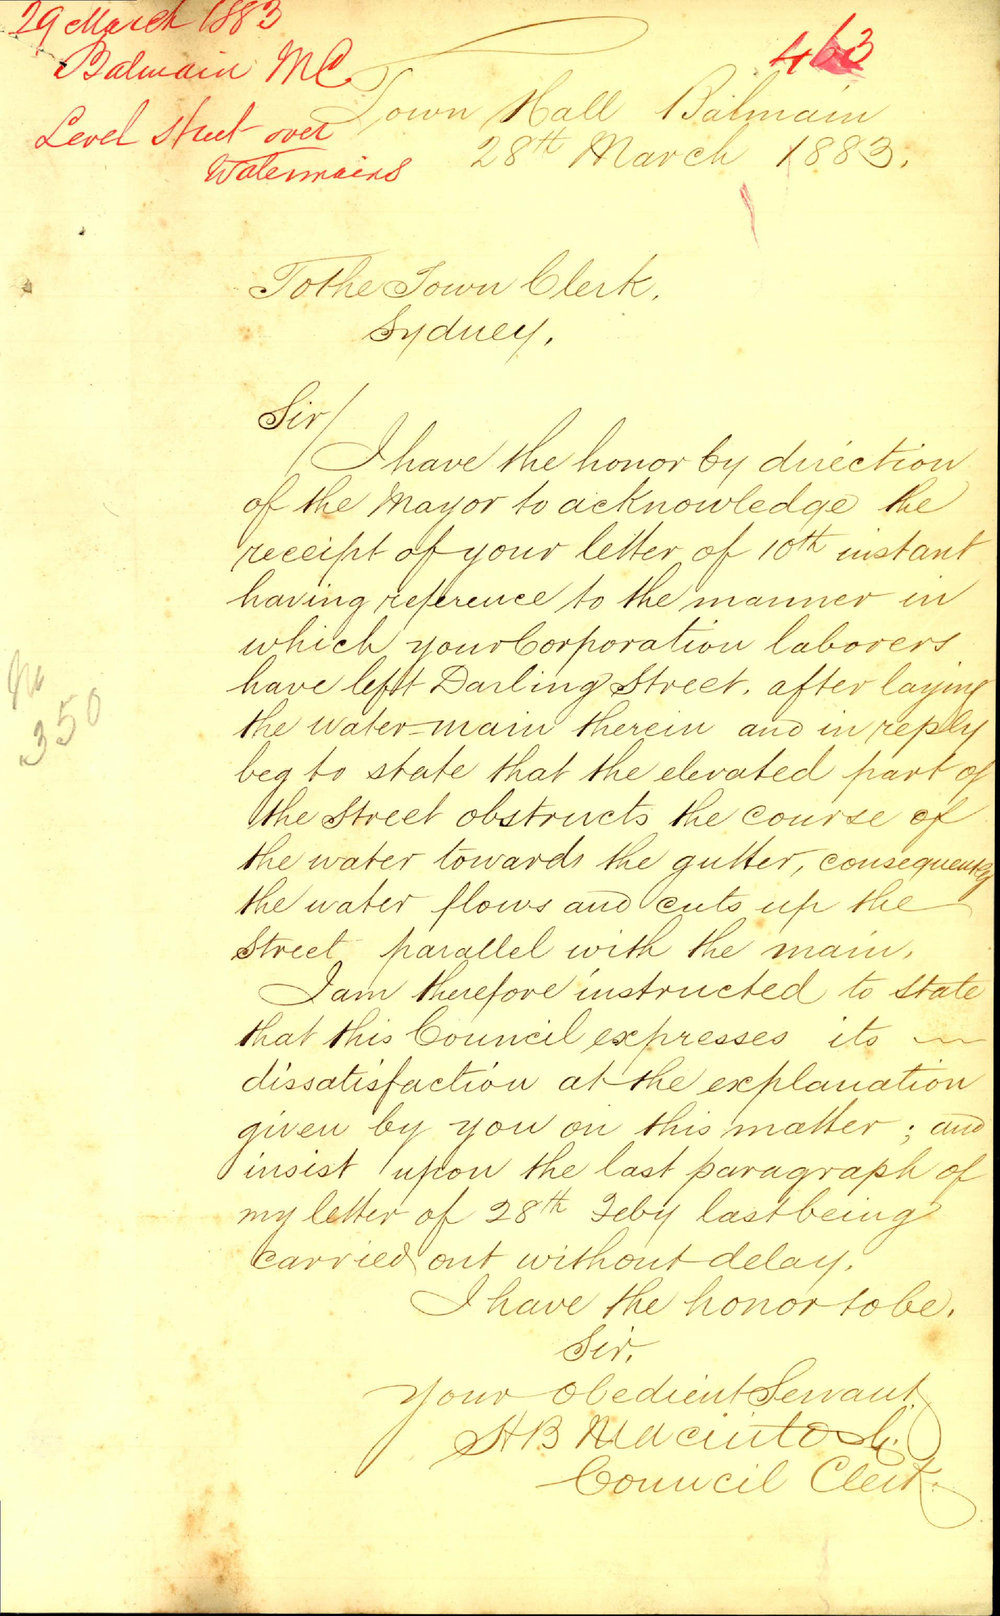 29 March 1883
Balmain MC
Level street over
Watermains
463
Town Hall Balmain
28th March 1883.
To the Town Clerk.
Sydney.
Sir/
I have the honor by direction
of the Mayor to acknowledge the
receipt of your letter of 10th instant
having reference to the manner in
which your Corporation laborers
have left Darling Street. after laying
the water-main therein and in reply
beg to state that the elevated part of
the Street obstructs the course of
the water towards the gutter, consequently
the water flows and cuts up the
Street parallel with the main.
I am therefore instructed to state
that this Council expresses its
dissatisfaction at the explanation
given by you on this matter; and
insist upon the last paragraph of
my letter of 28th Feby last being
carried out without delay.
I have the honor to be.
Sir.
Your Obedient Servant
H B Macintosh.
Council Clerk.
350